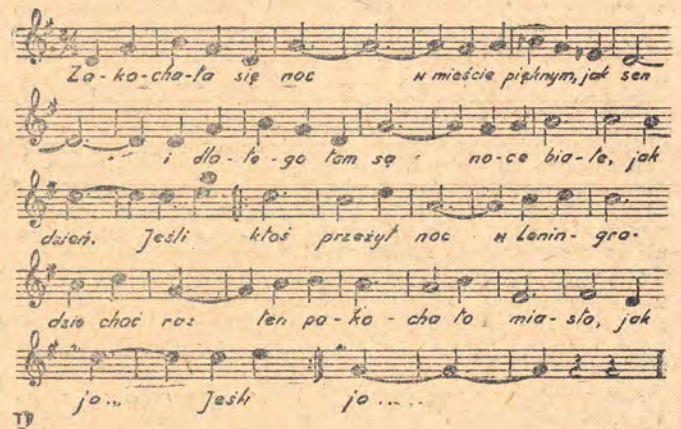 Za-ko-cha-ła się noc w mieście pięknym, jak sen
i dla-te-go tam są no-ce bia-łe, jak
dzień. Jeśli ktoś przeżył noc w Lenin-gra-
dzie choć raz ten po-ko-cha to mia-sto, jak
ja... Jeśli ja.....